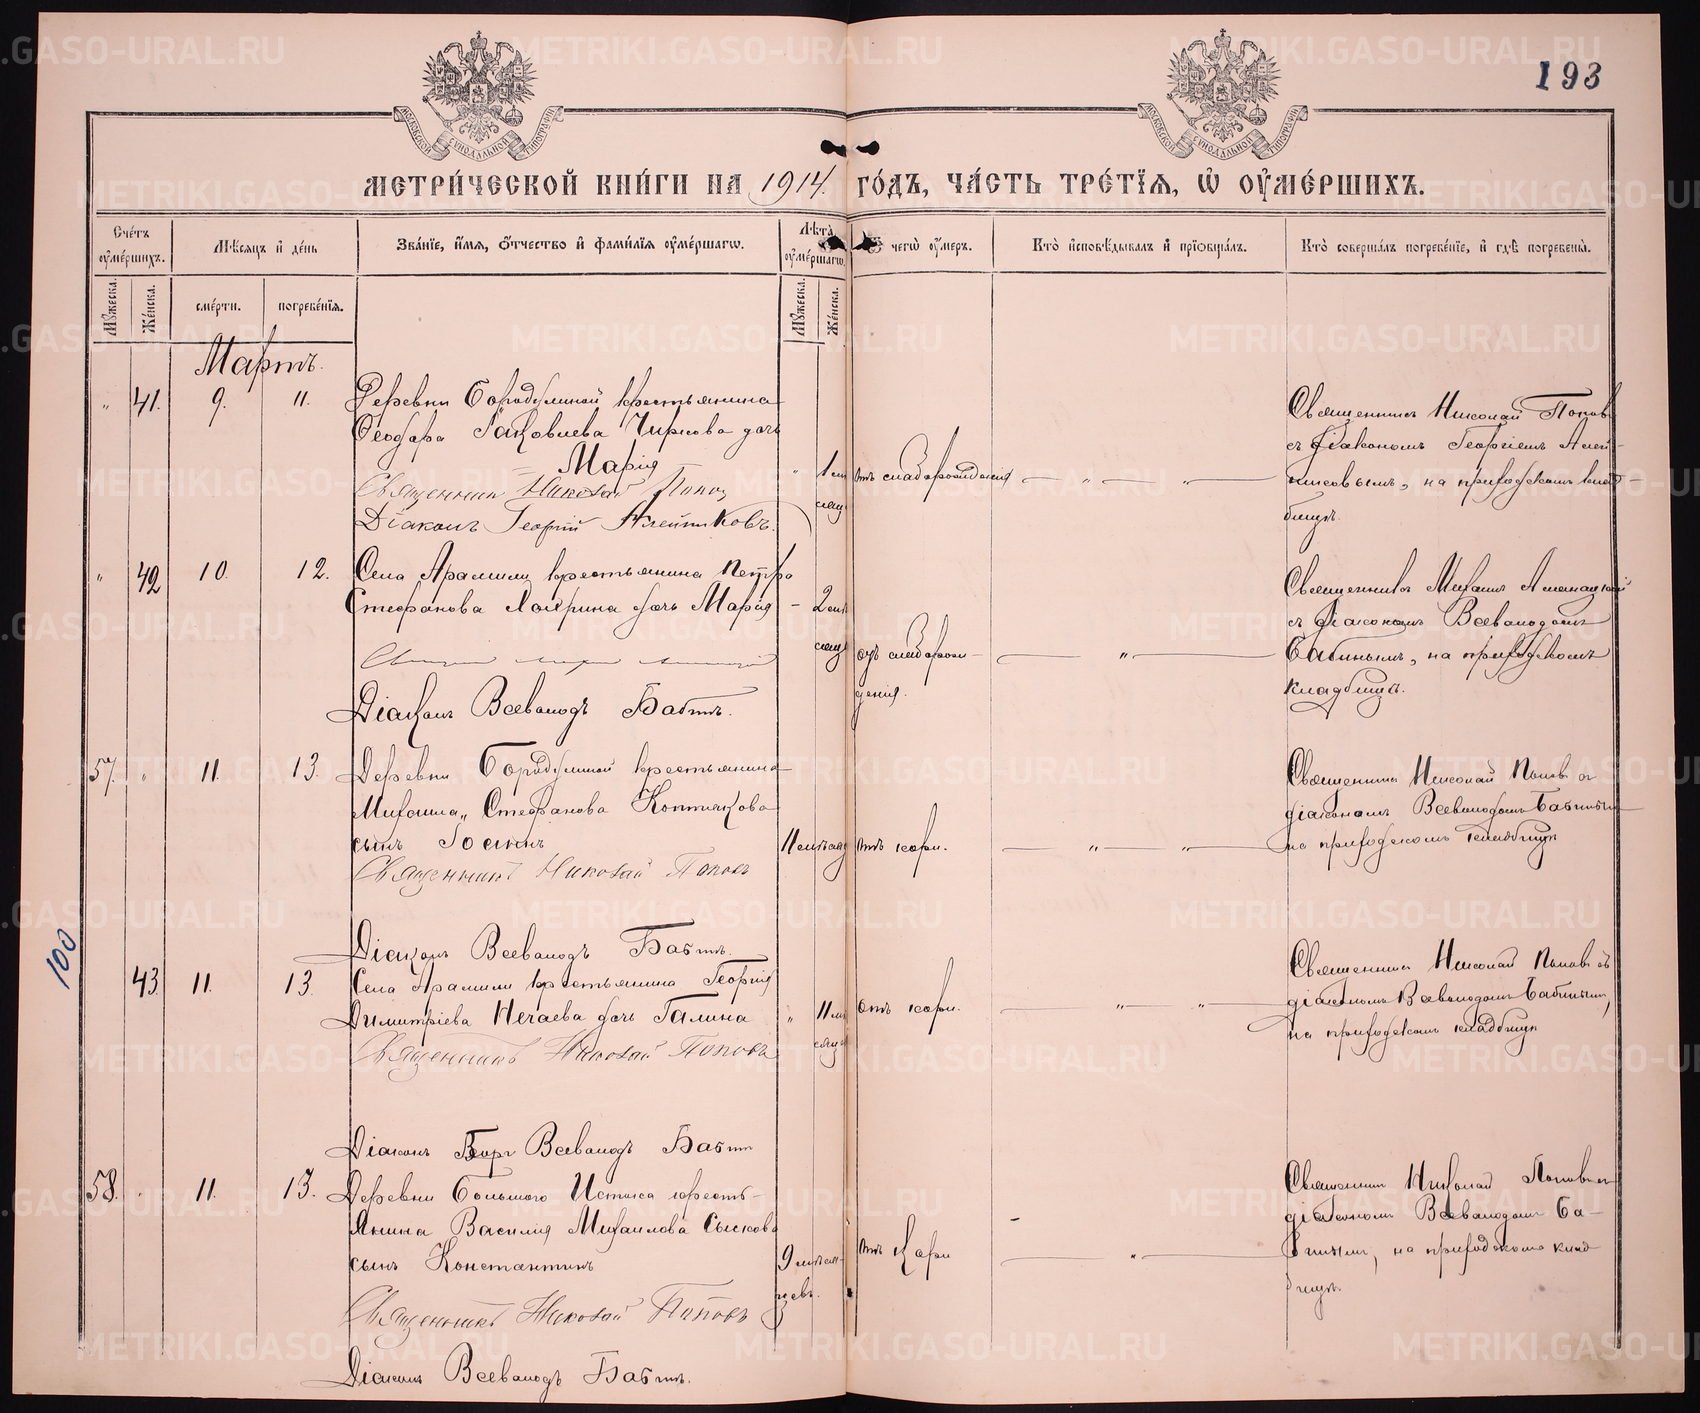 193
МОСКОВСКОЙ СѴНОДАЛЬНОЙ ТИПОГРАФІИ
МОСКОВСКОЙ СѴНОДАЛЬНОЙ ТИПОГРАФІИ
МЕТРИ́ЧЕСКОЙ КНИ́ГИ НА 1914 ГО́ДЪ, ЧА́СТЬ ТРЕ́ТІѦ, Ѡ ОУМЕ́РШИХЪ.
Сче́тъ оуме́ршихъ.
Мѣсяцъ и де́нь
Зва́ніе, и́мя, о́тчество и фами́лія оуме́ршагѡ.
Лѣта̀ оуме́ршагѡ
чегѡ̀ оу́меръ.
Кто̀ исповѣ́дывалъ и пріѡбща́лъ.
Кто̀ соверша́лъ погребе́ніе, и гдѣ̀ погребены̀.
Мꙋ́жеска.
Же́нска.
сме́рти.
погребе́нія.
Мꙋ́жеска.
Же́нска.
Мартъ.
" 41. 9. 11.
Деревни Бородулиной крестьянина
Ѳеодора Іаковлева Чиркова дочь
Марія
Священникъ Николай Попов
Діаконъ Георгій Алейниковъ.
" 1 мѣ
сяц
отъ слаборожденія
— " — " —
Священникъ Николай Поповъ
съ діакономъ Георгіемъ Алей-
никовымъ, на приходскомъ клад-
бищѣ.
" 42 10. 12.
Села Арамили крестьянина Петра
Стефанова дочь Марія
Діаконъ Всеволодъ Бабинъ.
— 2 мѣ
сяц
отъ слаборож-
денія.
— " —
Священникъ Михаилъ
съ діакономъ Всеволодомъ
Бабинымъ, на приходскомъ
кладбищѣ.
57. " 11. 13.
Деревни Бородулиной крестьянина
Михаила Стефанова Коптякова
сынъ Іосифъ
Священникъ Николай Поповъ
Діаконъ Всеволодъ Бабинъ.
11 мѣсяц
отъ кори.
— " — " —
Священникъ Николай Поповъ съ
діакономъ Всеволодомъ Бабинымъ
на приходскомъ кладбищѣ
100
43. 11. 13.
Села Арамили крестьянина Георгія
Димитріева Нечаева дочь Галина
Священникъ Николай Поповъ
Діаконъ Всеволодъ Бабинъ
" 11 мѣ
сяц
отъ кори.
— " — " —
Священникъ Николай Поповъ съ
діакономъ Всеволодомъ Бабинымъ,
на приходскомъ кладбищѣ
58. " 11. 13.
Деревни Большого Истока кресть-
янина Василія Михайлова Сыскова
сынъ Константинъ
Священникъ Николай Поповъ
Діаконъ Всеволодъ Бабинъ.
9 мѣся-
цевъ.
отъ кори
— " —
Священникъ Николай Поповъ съ
діакономъ Всеволодомъ Ба-
бинымъ, на приходскомъ клад-
бищѣ.
METRIKI.GASO-URAL.RU